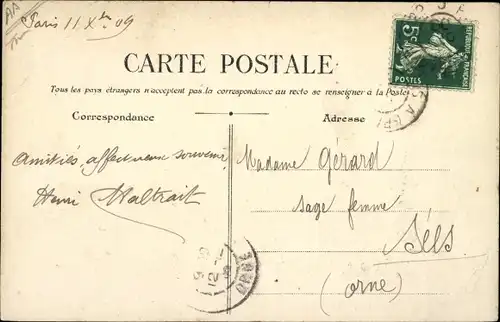 Paris 11 Xbre 09
5c
REPUBLIQUE FRANÇAISE
POSTES
CARTE POSTALE
Tous les pays étrangers n'acceptent pas la correspondance au recto se renseigner à la Poste
Correspondance
Adresse
Amitiés, affectueux souvenir,
Henri Maltrait
Madame Gérard
sage femme
Sées
(Orne)
ORNE